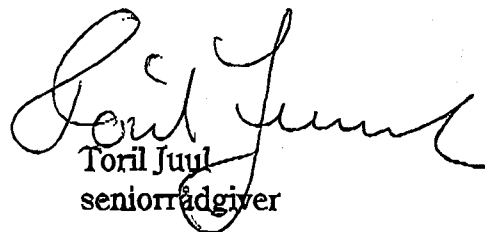 Toril Juul
Toril Juul
seniorrådgiver